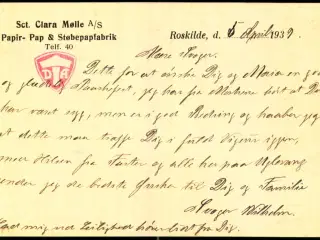 Sct. Clara Mølle A/S
Papir- Pap & Støbepapfabrik
Telf. 40
Roskilde, d. 5 April 1939
DTA
Kære Svoger.
Dette for at ønske Dig og Maria en god
og glædelig Paaskefest, jeg har fra Mutter hørt at Du
har været syg, men er i god Bedring og haaber jeg
at dette maa træffe Dig i fuld Vigeur igen,
mer Hilsen fra Tante og alle her paa Uglevang
sender jeg de bedste Ønsker til Dig og Familie
Svoger Vilhelm.
Lad mig ved Leilighed høre lidt fra Dig.